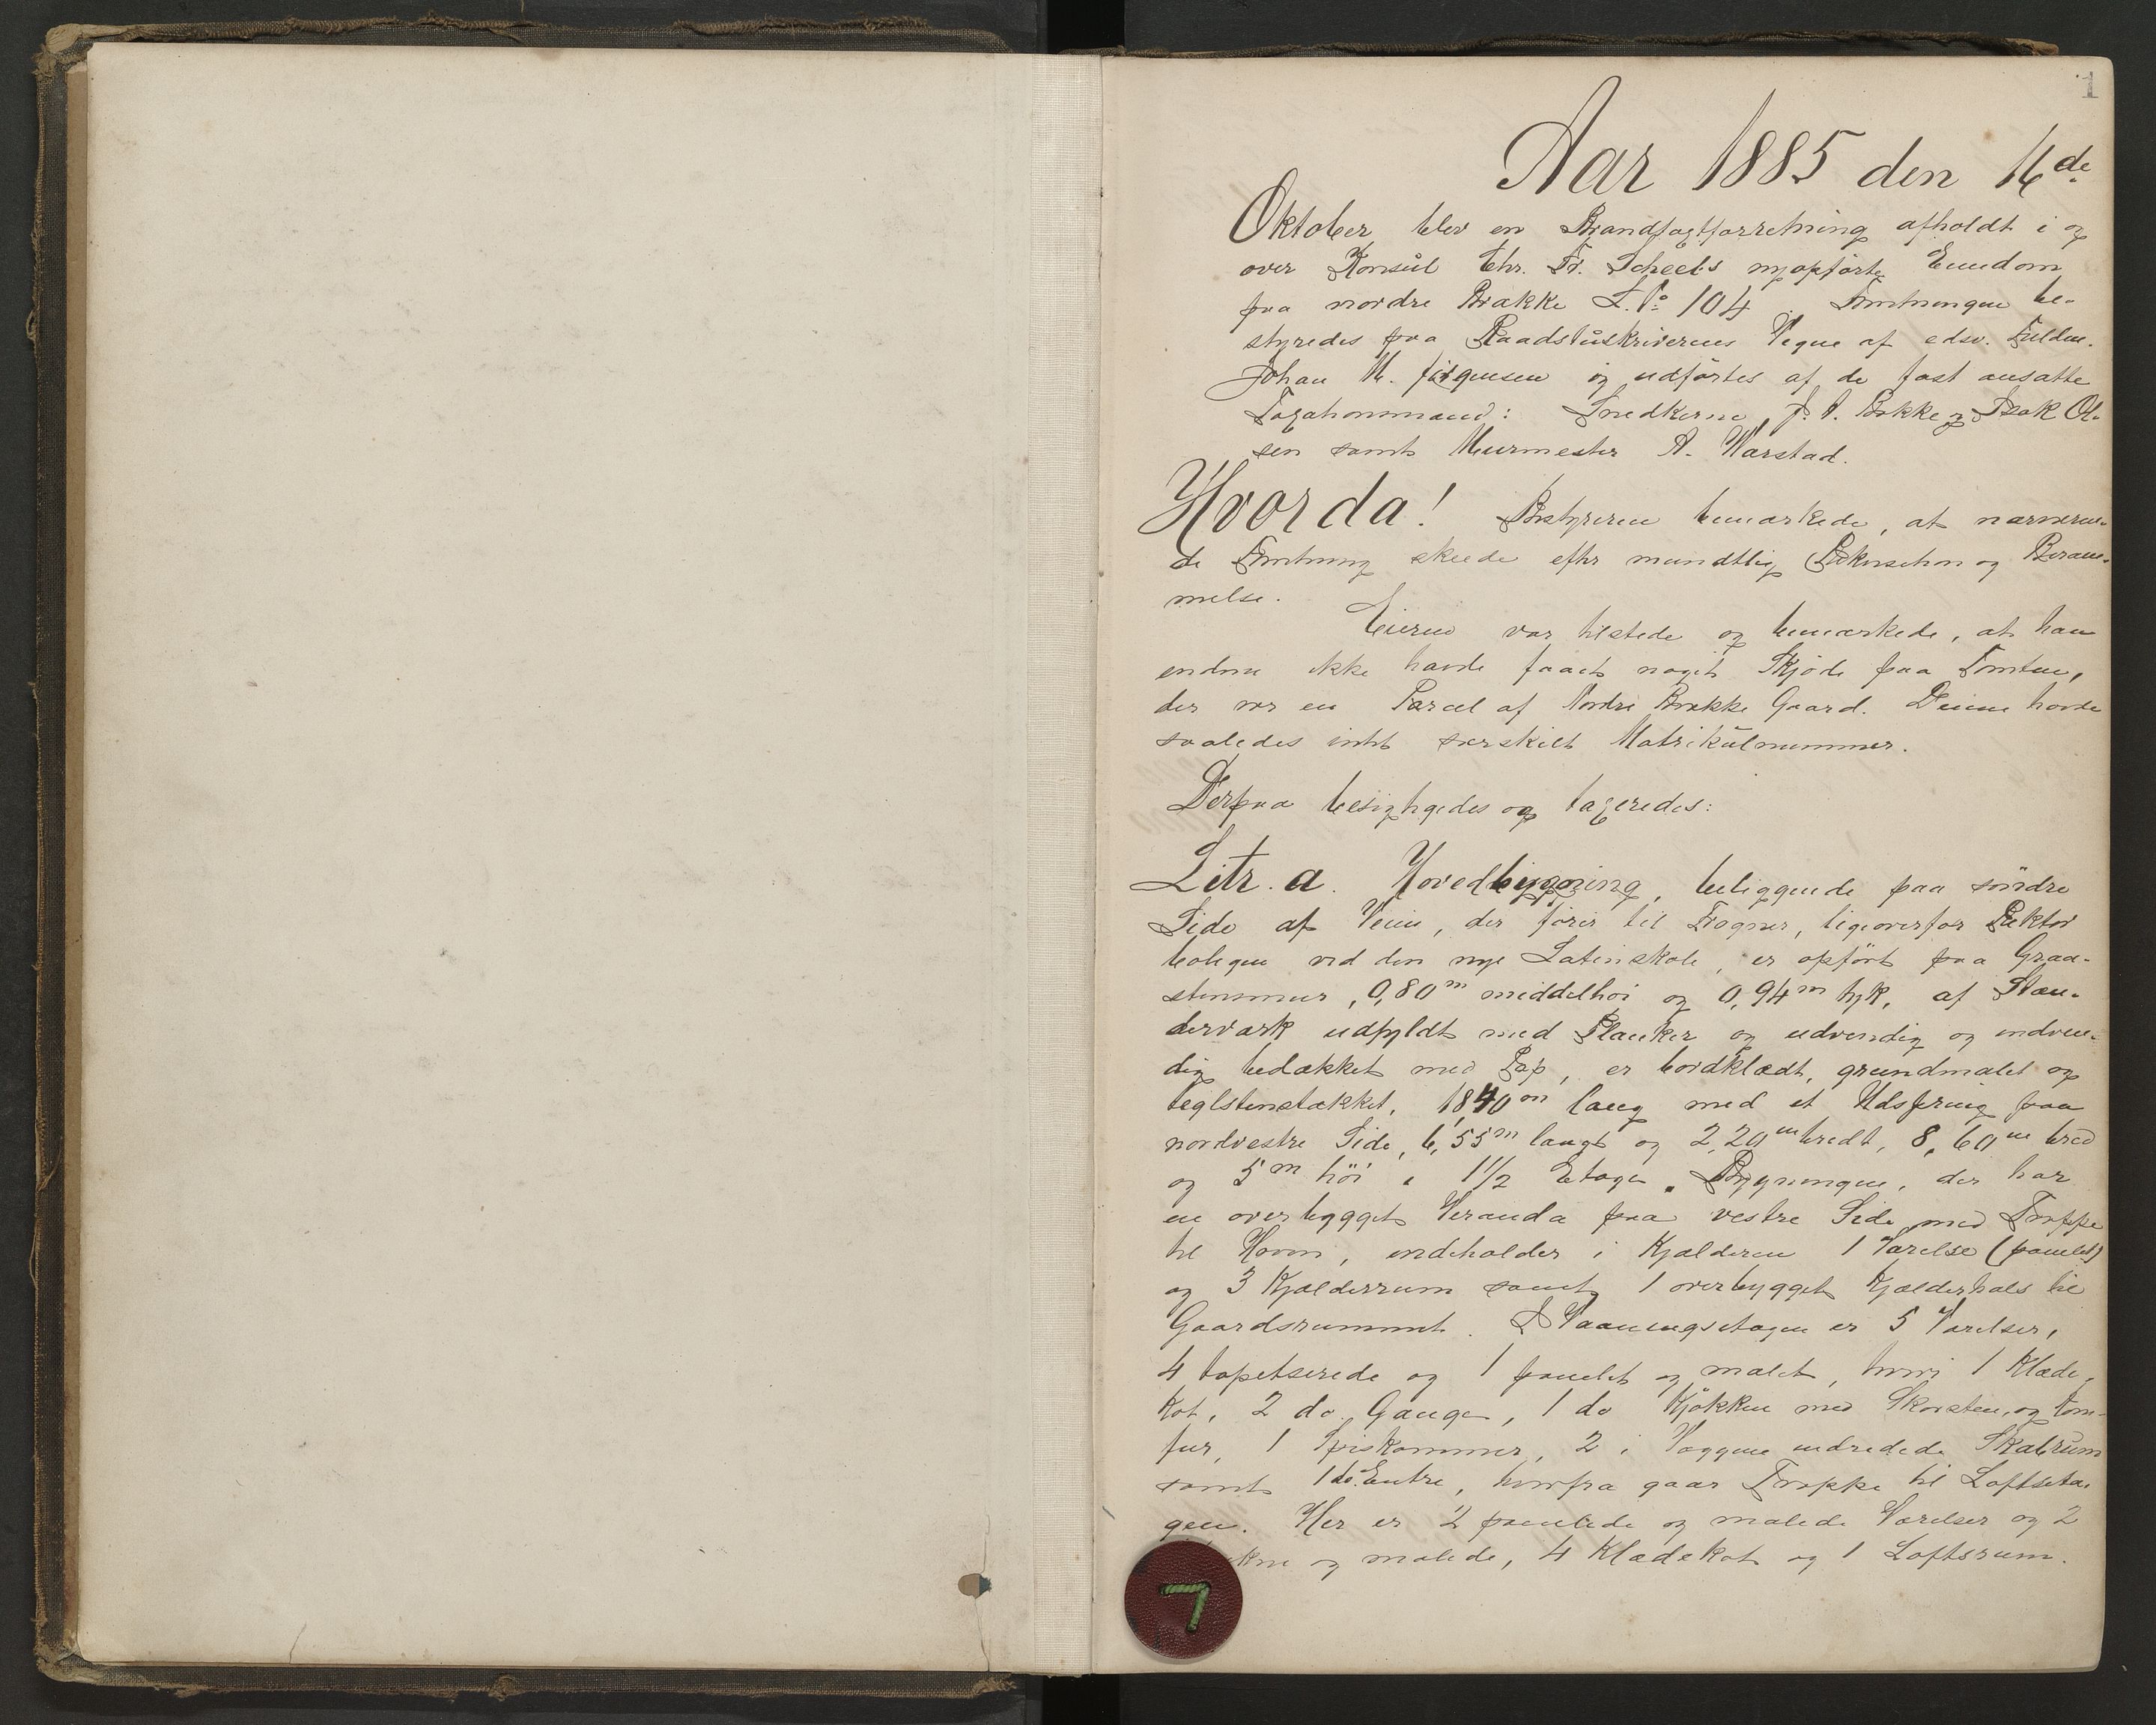 1
Aar 1885 den 16de
Oktober blev en Brandtaxtforretning afholdt i og
over Konsul Chr. Fr. Scheel's nyopførte Eiendom
paa nordre Brække L. No 104. Forretningen be-
styredes paa Raadstuskriverens Vegne af edsv. Fuldm.
Johan M. Jørgensen og udførtes af de fast ansatte
Taxationsmænd: Snedkerne J. A. Bakke og Isak Ol-
sen samt Murmester A. Warstad.
Hvorda! Bestyreren bemærkede, at nærværen-
de Forretning skeede efter mundtlig Rekvisition og Beram-
melse.
Eieren var tilstede og bemærkede, at han
endnu ikke havde faaet noget Skjøde paa Tomten,
der var en Parcel af Nordre Brække Gaard. Denne havde
saaledes intet særskilt Matrikülnummer.
Derpaa besigtigedes og taxeredes:
Litr. a. Hovedbygning, beliggende paa søndre
Side af Veien, der fører til Frogner, ligeoverfor Rektor
boligen ved den nye Latinskole, er opført paa Graa-
stensmur, 0,80 m middelhøi og 0,94 m tyk, af Stæn-
derværk udfyldt med Planker og udvendig og indven-
dig bedækket med Pap, er bordklædt, grundmalet og
teglstenstækket, 18,40 m lang med et Udspring paa
nordvestre Side, 6,55 m langt og 2,20 m bredt, 8,60 m bred
og 5 m høi i 1 1/2 Etage. Bygningen, der har
en overbygget Veranda paa vestre Side med Trappe
til Haven, indeholder i Kjælderen 1 Værelse (panelet)
og 3 Kjælderrum samt 1 overbygget Kjælderhals til
Gaardsrummet. I Vaaningsetagen er 5 Værelser,
4 tapetserede og 1 panelet og malet, hvori 1 Klæde-
kot, 2 do. Gange, 1 do Kjøkken med Skorsten og Kom-
fur, 1 Spiskammer, 2 i Væggene indredede Skabrum
samt 1 do. Entre, hvorfra gaar Trappe til Loftseta-
gen. Her er 2 panelede og malede Værelser og 2
og malede, 4 Klædekot og 1 Loftsrum.
7